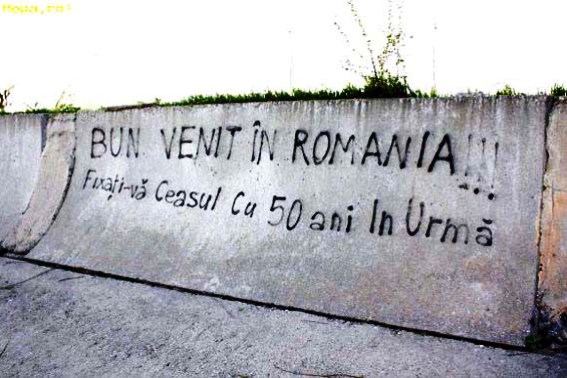 BUN VENIT ÎN ROMANIA!!!
Fixați-vă Ceasul Cu 50 ani In Urmă